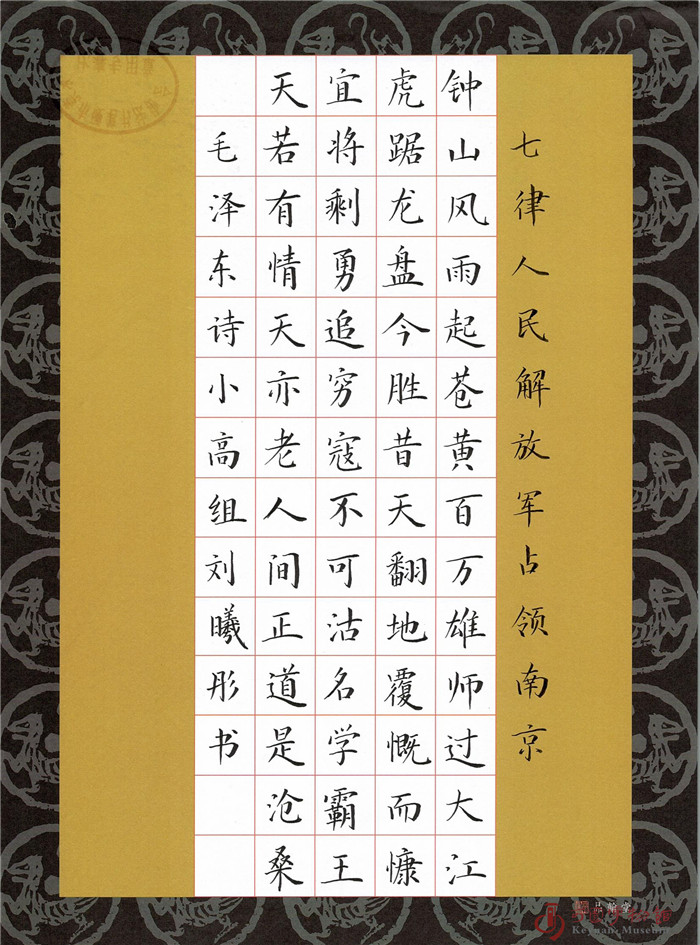 七律人民解放军占领南京
钟山风雨起苍黄百万雄师过大江
虎踞龙盘今胜昔天翻地覆慨而慷
宜将剩勇追穷寇不可沽名学霸王
天若有情天亦老人间正道是沧桑
毛泽东诗小高组刘曦彤书
Keyuan Museum